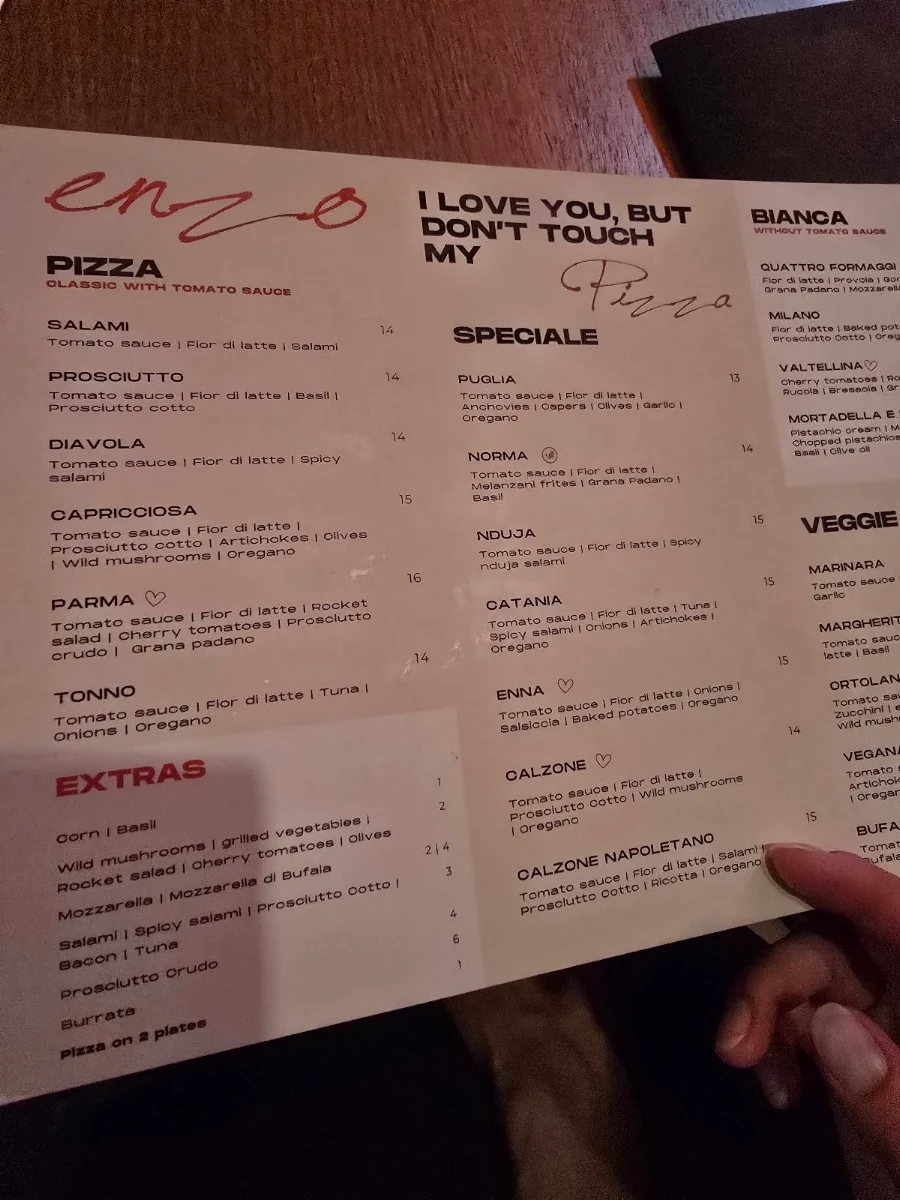 enzo
PIZZA
CLASSIC WITH TOMATO SAUCE
SALAMI 14
Tomato sauce | Fior di latte | Salami
PROSCIUTTO 14
Tomato sauce | Fior di latte | Basil |
Prosciutto cotto
DIAVOLA 14
Tomato sauce | Fior di latte | Spicy
salami
CAPRICCIOSA 15
Tomato sauce | Fior di latte |
Prosciutto cotto | Artichokes | Olives
| Wild mushrooms | Oregano
PARMA ♡ 16
Tomato sauce | Fior di latte | Rocket
salad | Cherry tomatoes | Prosciutto
crudo | Grana padano
TONNO 14
Tomato sauce | Fior di latte | Tuna |
Onions | Oregano
EXTRAS
Corn | Basil 1
Wild mushrooms | grilled vegetables | 2
Rocket salad | Cherry tomatoes | Olives
Mozzarella | Mozzarella di Bufala 2 | 4
Salami | Spicy salami | Prosciutto Cotto | 3
Bacon | Tuna
Prosciutto Crudo 4
Burrata 6
Pizza on 2 plates 1
I LOVE YOU, BUT
DON'T TOUCH
MY
Pizza
SPECIALE
PUGLIA 13
Tomato sauce | Fior di latte |
Anchovies | Capers | Olives | Garlic |
Oregano
NORMA 14
Tomato sauce | Fior di latte |
Melanzani frites | Grana Padano |
Basil
NDUJA 15
Tomato sauce | Fior di latte | Spicy
nduja salami
CATANIA 15
Tomato sauce | Fior di latte | Tuna |
Spicy salami | Onions | Artichokes |
Oregano
ENNA ♡ 15
Tomato sauce | Fior di latte | Onions |
Salsiccia | Baked potatoes | Oregano
CALZONE ♡ 14
Tomato sauce | Fior di latte |
Prosciutto Cotto | Wild mushrooms
| Oregano
CALZONE NAPOLETANO 15
Tomato sauce | Fior di latte | Salami |
Prosciutto Cotto | Ricotta | Oregano
BIANCA
WITHOUT TOMATO SAUCE
QUATTRO FORMAGGI
Fior di latte | Provola |
Grana Padano |
MILANO
Fior di latte | Baked
Prosciutto Cotto |
VALTELLINA ♡
Cherry tomatoes |
Rucola | Bresaola |
MORTADELLA E
Pistachio cream |
Chopped pistachios
Basil | Olive oil
VEGGIE
MARINARA
Tomato sauce
Garlic
MARGHERIT
Tomato
latte | Basil
ORTOLAN
Tomato
zucchini |
Wild
VEGANA
Tomato
| 
BUFA